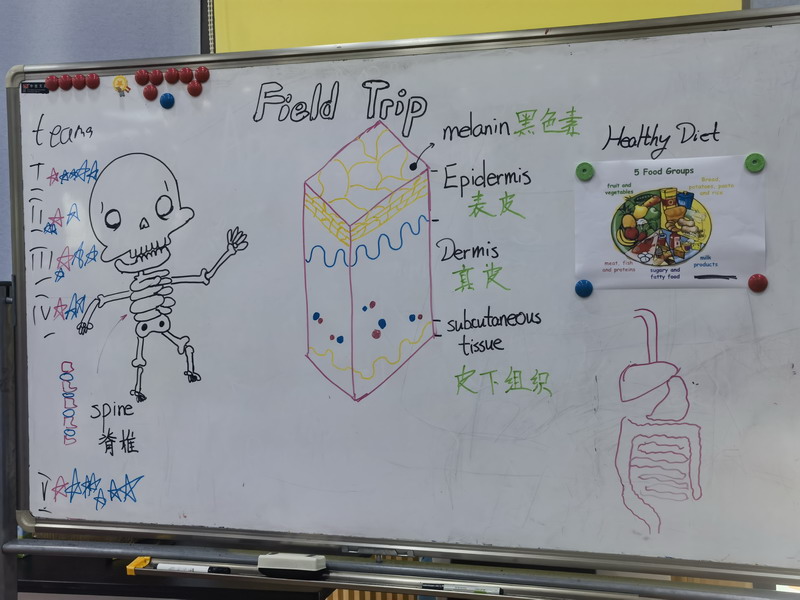 Field Trip
teams
I
II
III
IV
V
spine
脊椎
melanin 黑色素
Epidermis
表皮
Dermis
真皮
subcutaneous
tissue
皮下组织
Healthy Diet
5 Food Groups
fruit and
vegetables
Bread,
potatoes, pasta
and rice
meat, fish
and proteins
sugary and
fatty food
milk
products